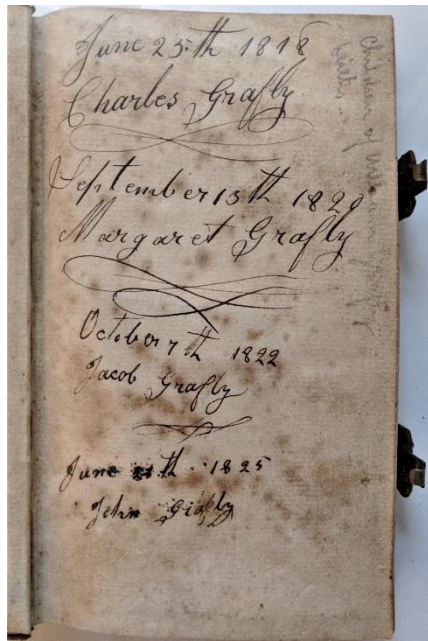 June 25.th 1818
Charles Grafly
September 15th 1820
Margaret Grafly
October 7th 1822
Jacob Grafly
June th 1825
John Grafly
Children of
births